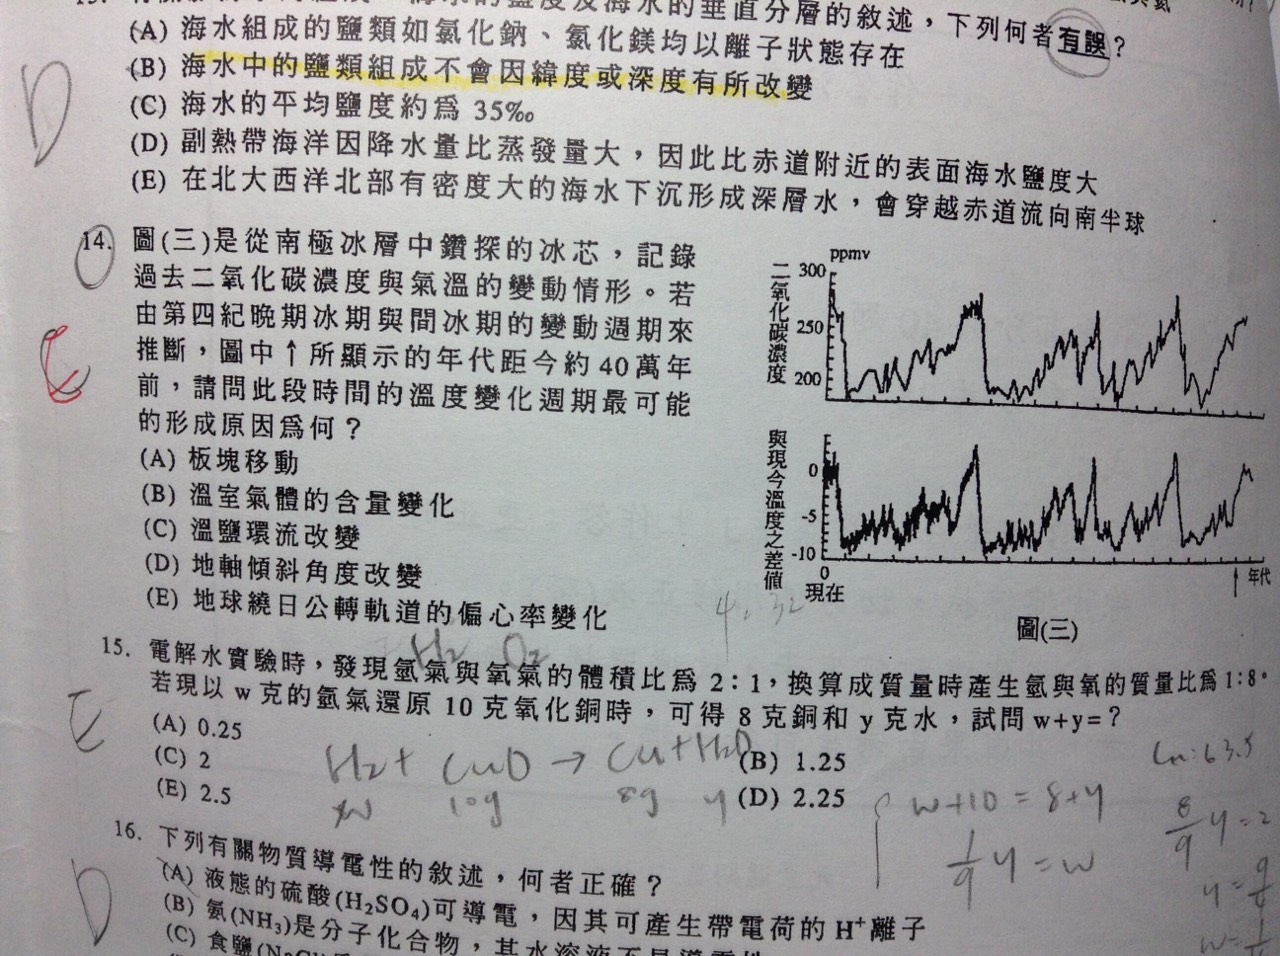 海水的鹽度及海水的垂直分層的敘述，下列何者有誤？
(A) 海水組成的鹽類如氯化鈉、氯化鎂均以離子狀態存在
(B) 海水中的鹽類組成不會因緯度或深度有所改變
(C) 海水的平均鹽度約為 35‰
(D) 副熱帶海洋因降水量比蒸發量大，因此比赤道附近的表面海水鹽度大
(E) 在北大西洋北部有密度大的海水下沉形成深層水，會穿越赤道流向南半球
D
14. 圖(三)是從南極冰層中鑽探的冰芯，記錄
過去二氧化碳濃度與氣溫的變動情形。若
由第四紀晚期冰期與間冰期的變動週期來
推斷，圖中↑所顯示的年代距今約40萬年
前，請問此段時間的溫度變化週期最可能
的形成原因為何？
(A) 板塊移動
(B) 溫室氣體的含量變化
(C) 溫鹽環流改變
(D) 地軸傾斜角度改變
(E) 地球繞日公轉軌道的偏心率變化
ppmv
300
250
200
二氧化碳濃度
0
-5
-10
與現今溫度之差值
0
現在
↑ 年代
圖(三)
H₂ O₂
15. 電解水實驗時，發現氫氣與氧氣的體積比為 2：1，換算成質量時產生氫與氧的質量比為 1:8。
若現以 w 克的氫氣還原 10 克氧化銅時，可得 8 克銅和 y 克水，試問 w+y=？
E
(A) 0.25
(B) 1.25
(C) 2
(D) 2.25
(E) 2.5
H₂ + CuO → Cu + H₂O
w 10g 8g y
w+10 = 8+y
1/9 y = w
Cu:63.5
8/9 y = 2
16. 下列有關物質導電性的敘述，何者正確？
D
(A) 液態的硫酸(H₂SO₄)可導電，因其可產生帶電荷的 H⁺ 離子
(B) 氨(NH₃)是分子化合物，其水溶液不具導電性
(C) 食鹽